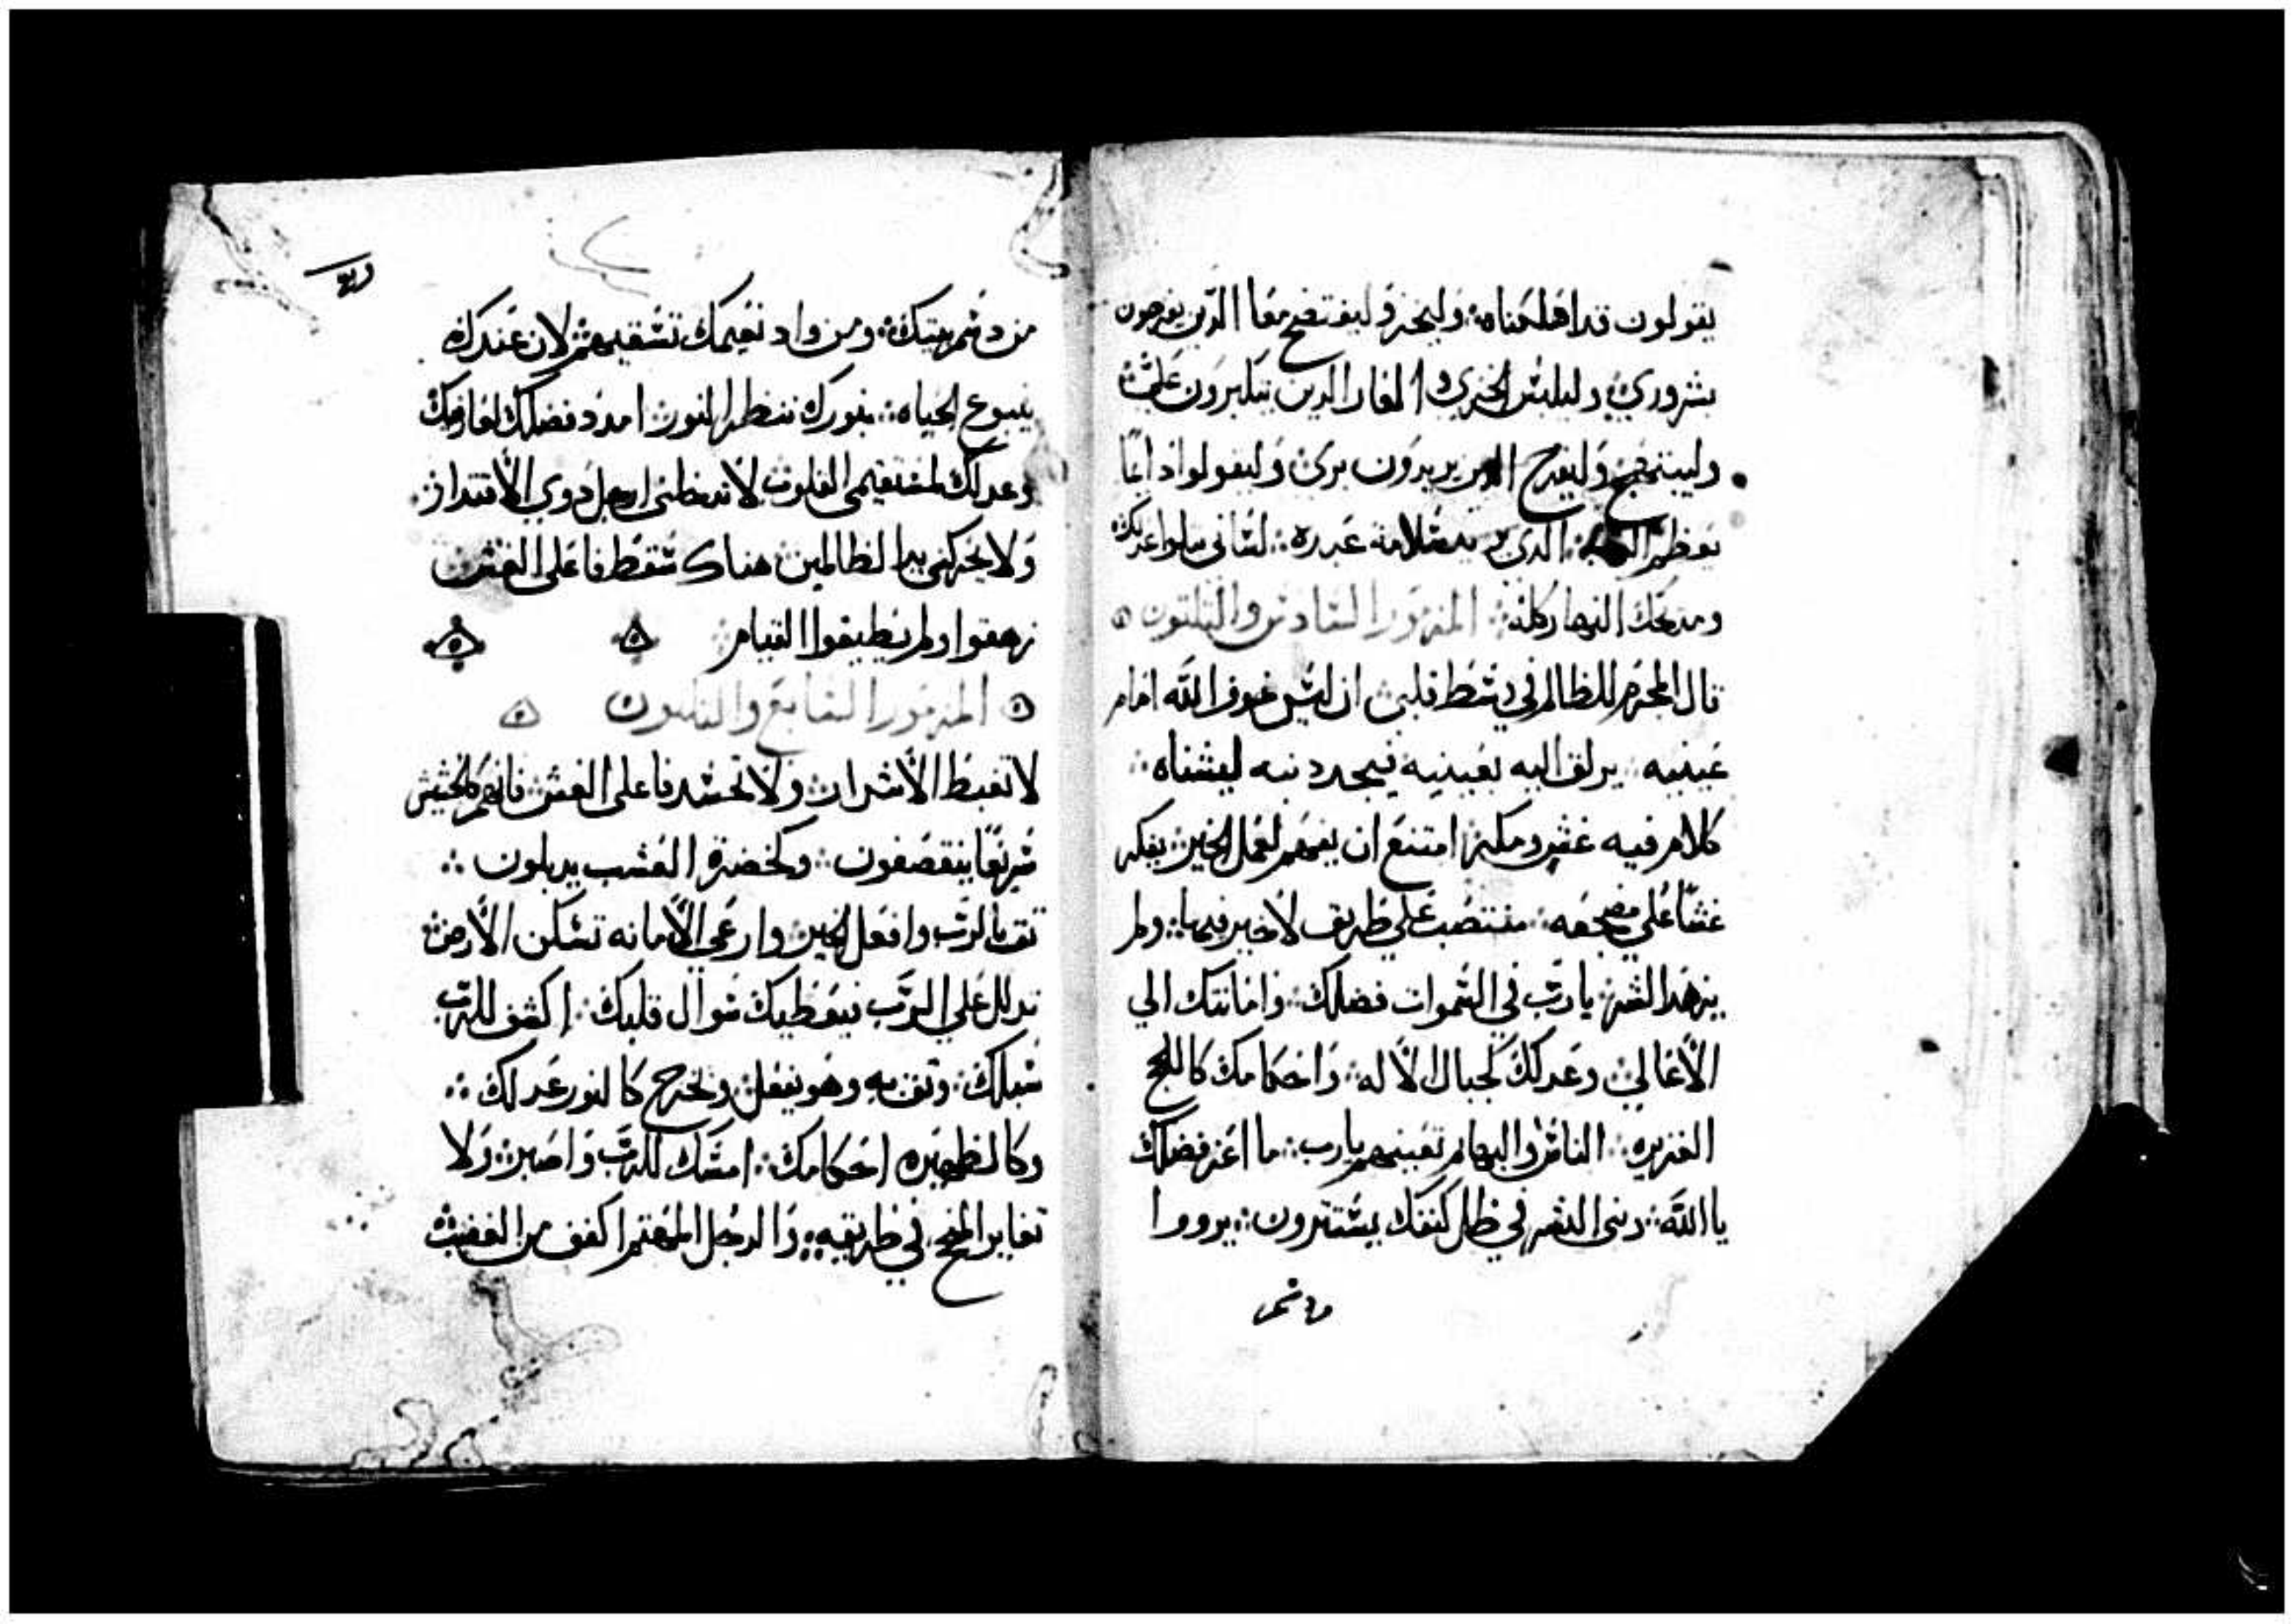 يقولون قد اهلكناه ۞ وليخز وليفتضح معا الدين يفرحون
بشروري وليلبس الخزي والعار الدين يتكبرون علي
وليبتهج وليفرح الدين يريدون بري وليقولوا دايما
تعظم الدي يريد سلامة عبده ۞ لساني يتلوا عدلك
ومدحك النهار كله ۞ المزمور السادس والتلتون
قال المجرم للظالم في وسط قلبي ان ليس خوف الله امام
عينيه ۞ يزلف اليه بعينيه فيجد دنبه ليشناه ۞
كلام فيه غش ومكر امتنع ان يفهم لعمل الخير يفكر
غشا علي مضجعه ۞ منتصب علي طريق لا خير فيها ۞ ولم
يزهد الشر ۞ يا رب في السموات فضلك ۞ وامانتك الي
الأعالي وعدلك كجبال الأله ۞ واحكامك كاللجج
الغزيره ۞ الناس والبهايم تعينهم يا رب ۞ ما اعز فضلك
يا الله ۞ وبني البشر في ظل كنفك يستترون ۞ يرووا
من دسم بيتك ۞ ومن واد نعيمك تسقيهم لان عندك
ينبوع الحياه ۞ بنورك ننظر النور امدد فضلك لعارفيك
وعدلك لمستقيمي القلوب لا تدخلني ارجل دوي الأقتدار
ولا تحركني يد الظالمين هناك سقط فاعلي الغش
زهقوا ولم يطيقوا القيام
المزمور السابع والتلتون
لا تغبط الأشرار ولا تحسد فاعلي الغش فانهم كالحشيش
سريعا ينقصفون ۞ وكخضرة العشب يدبلون ۞
تق بالرب وافعل الخير وارعي الأمانه تسكن الأرض
تدلل علي الرب فيعطيك سوال قلبك ۞ اكشف للرب
سبلك ۞ وتق به وهو يفعل وتخرج كالنور عدلك ۞
وكالظهيره احكامك ۞ امسك للرب واصبر ولا
تغاير المنجح في طريقه ۞ والرجل المغتم اكفف من الغضب